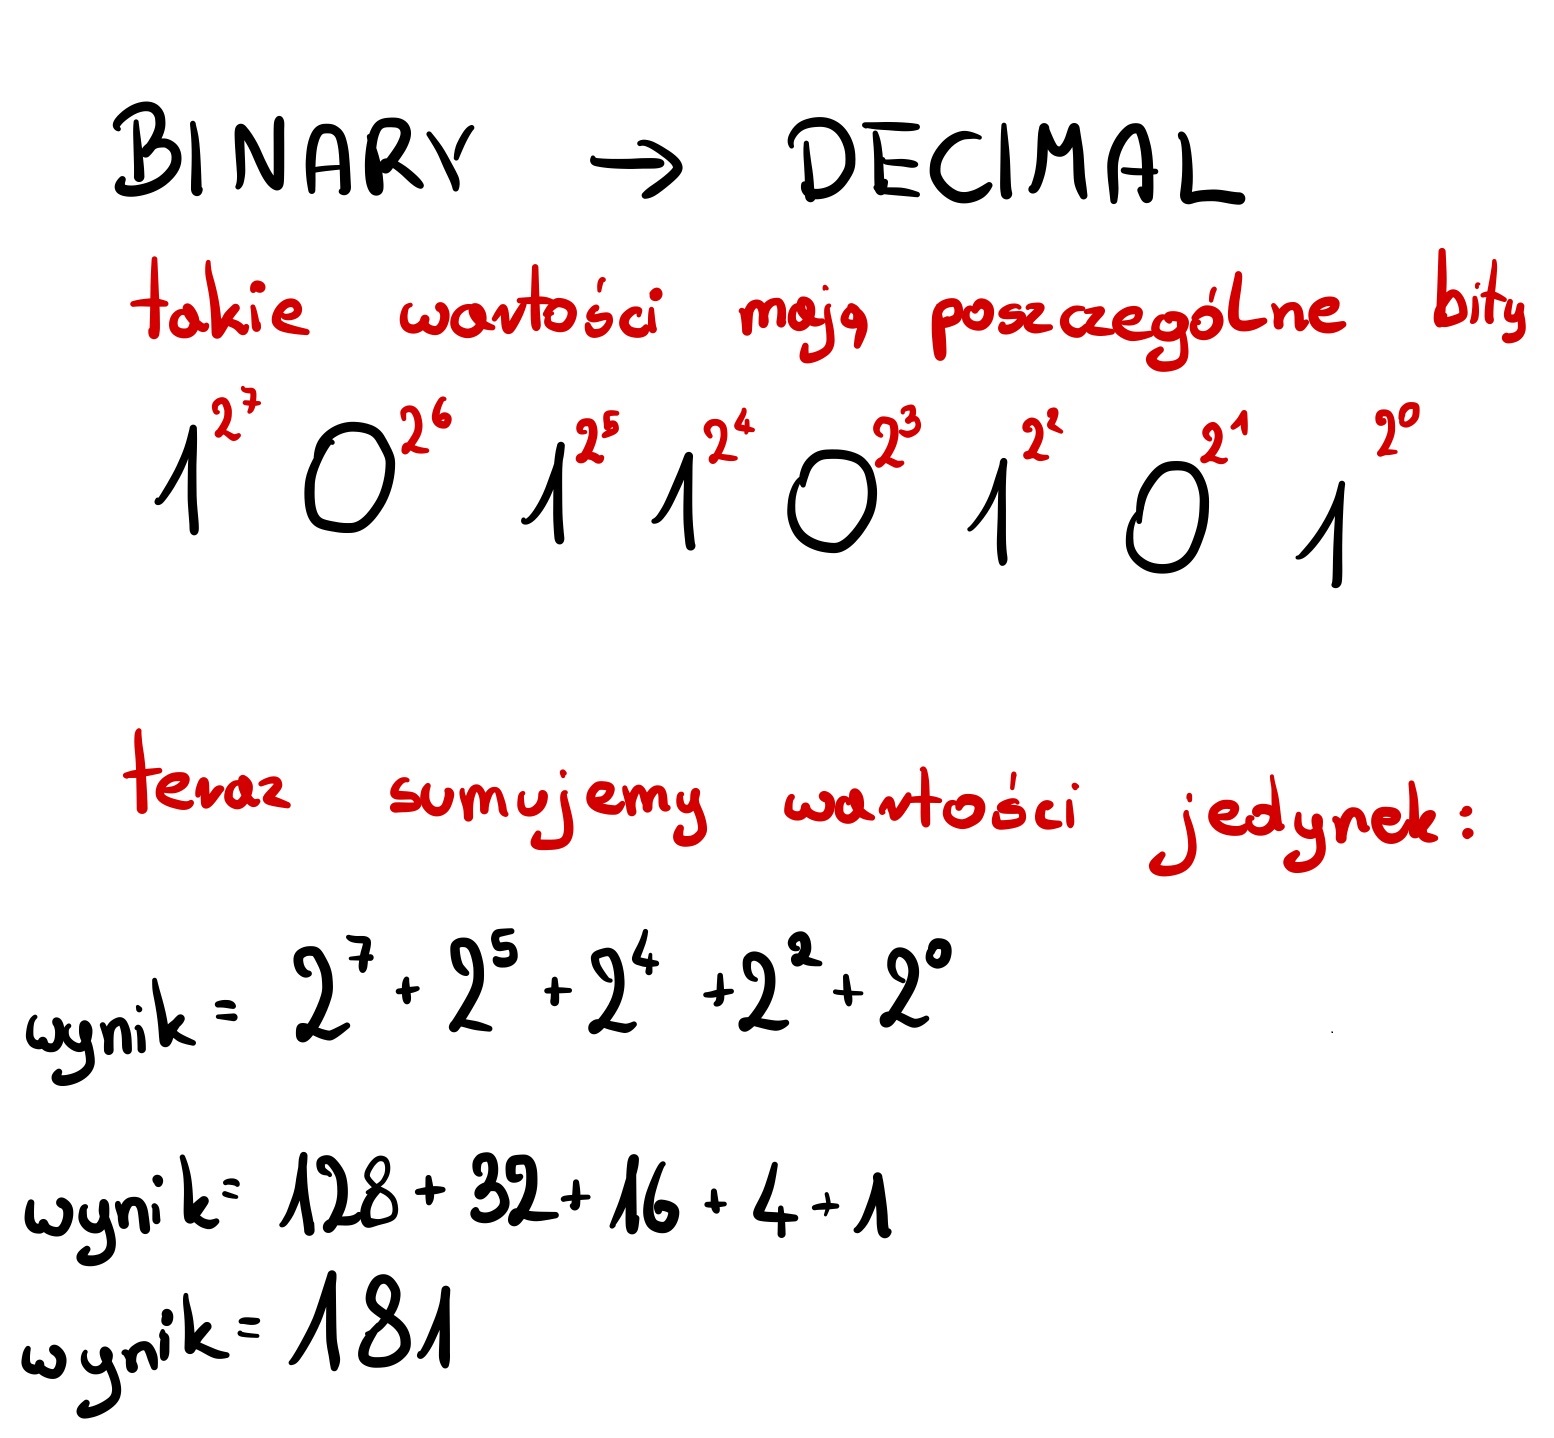 BINARY → DECIMAL
takie wartości mają poszczególne bity
1 2⁷ 0 2⁶ 1 2⁵ 1 2⁴ 0 2³ 1 2² 0 2¹ 1 2⁰
teraz sumujemy wartości jedynek:
wynik = 2⁷ + 2⁵ + 2⁴ + 2² + 2⁰
wynik = 128 + 32 + 16 + 4 + 1
wynik = 181